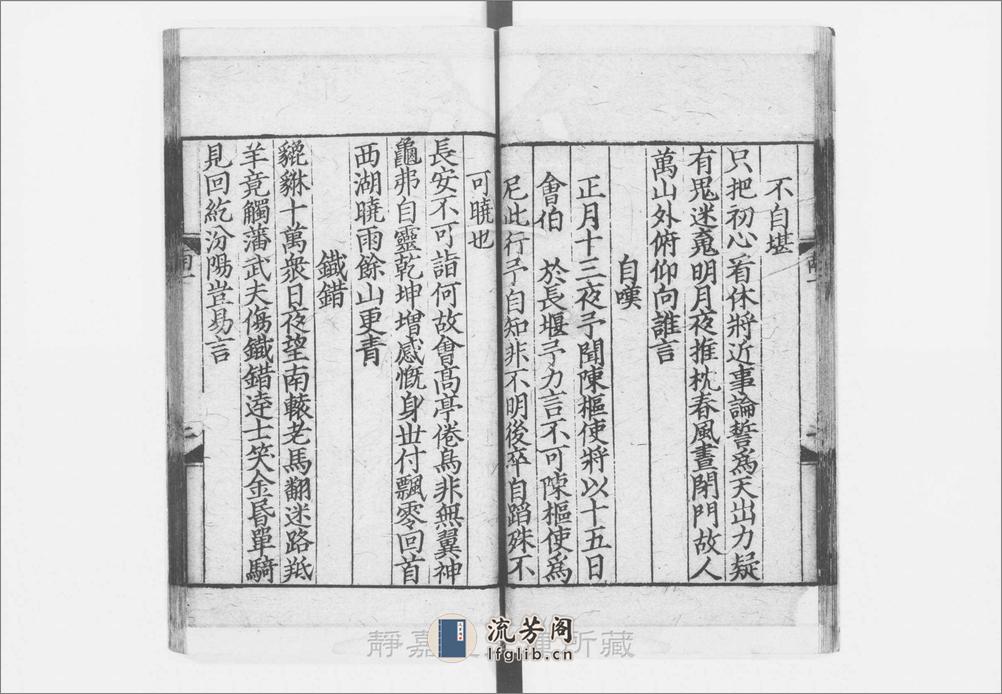 不自堪
只把初心看休將近事論誓爲天出力疑
有鬼迷䰟明月夜推枕春風晝閉門故人
萬山外俯仰向誰言
自嘆
正月十三夜予聞陳樞使將以十五日
會伯 於長堰予力言不可陳樞使爲
尼此行予自知非不明後卒自蹈殊不
可曉也
長安不可詣何故會髙亭倦鳥非無翼神
龜弗自靈乾坤增感慨身世付飄零回首
西湖曉雨餘山更青
鐵錯
貔貅十萬衆日夜望南轅老馬翻迷路羝
羊竟觸藩武夫傷鐵錯逹士笑金昏單騎
見回紇汾陽豈易言
流芳阁
lfglib.cn
靜嘉 所藏